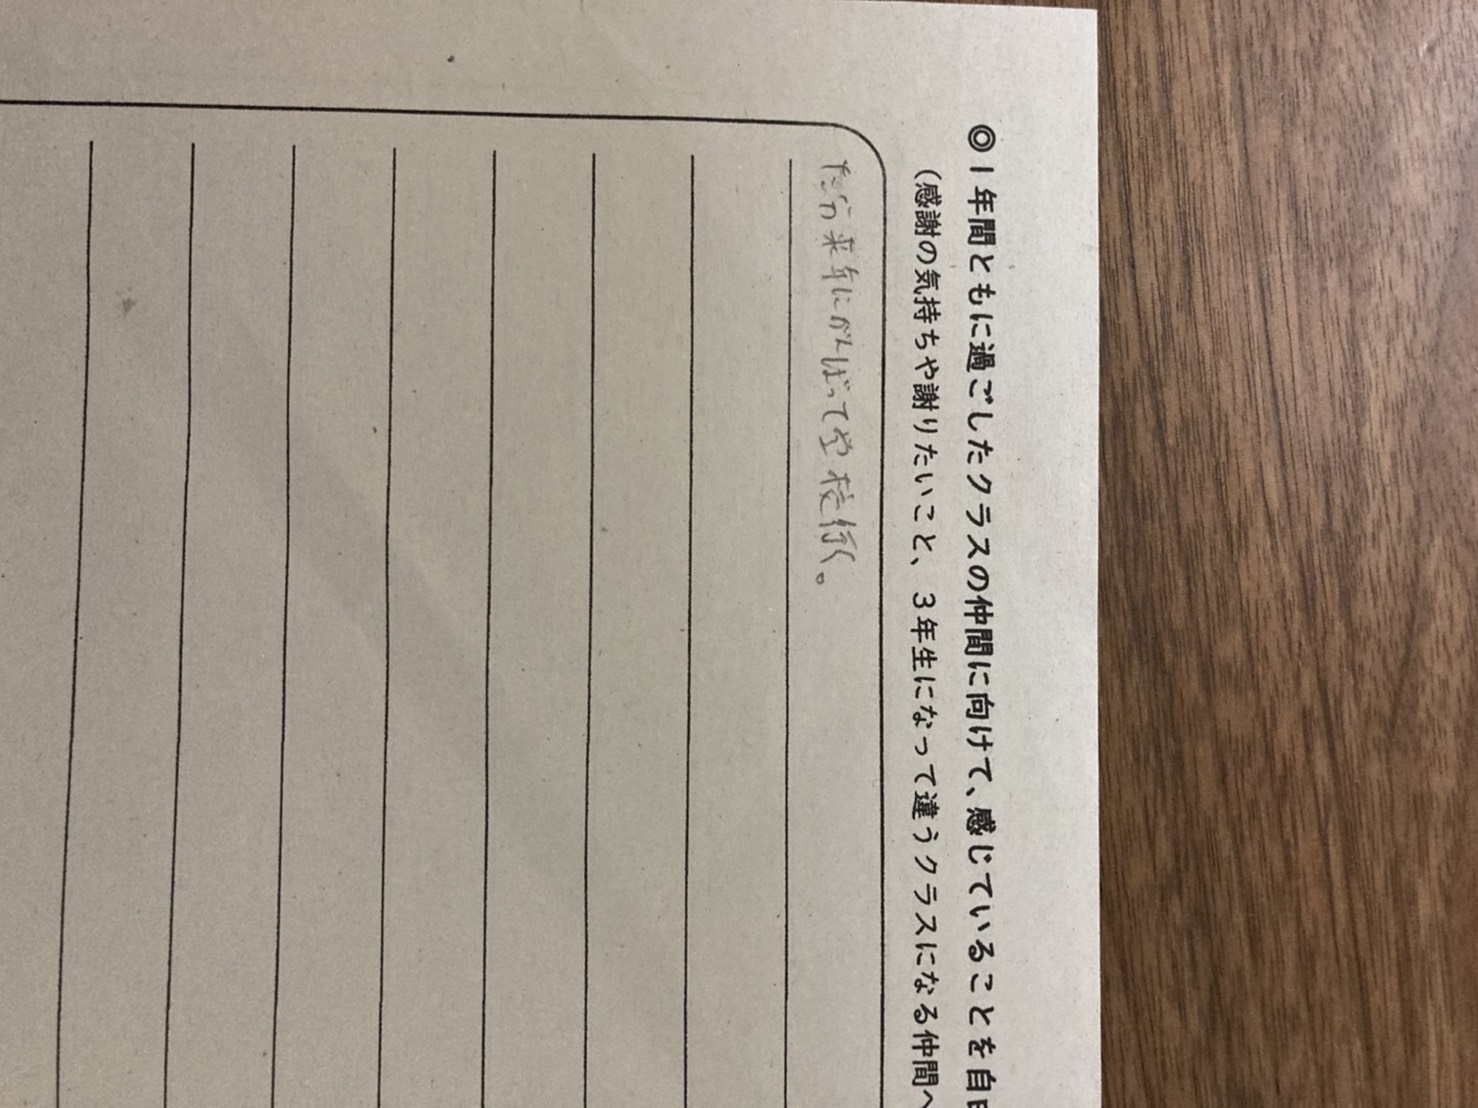 ◎1年間ともに過ごしたクラスの仲間に向けて、感じていることを自由
(感謝の気持ちや謝りたいこと、3年生になって違うクラスになる仲間へ
た分来年にがんばって学校行く。